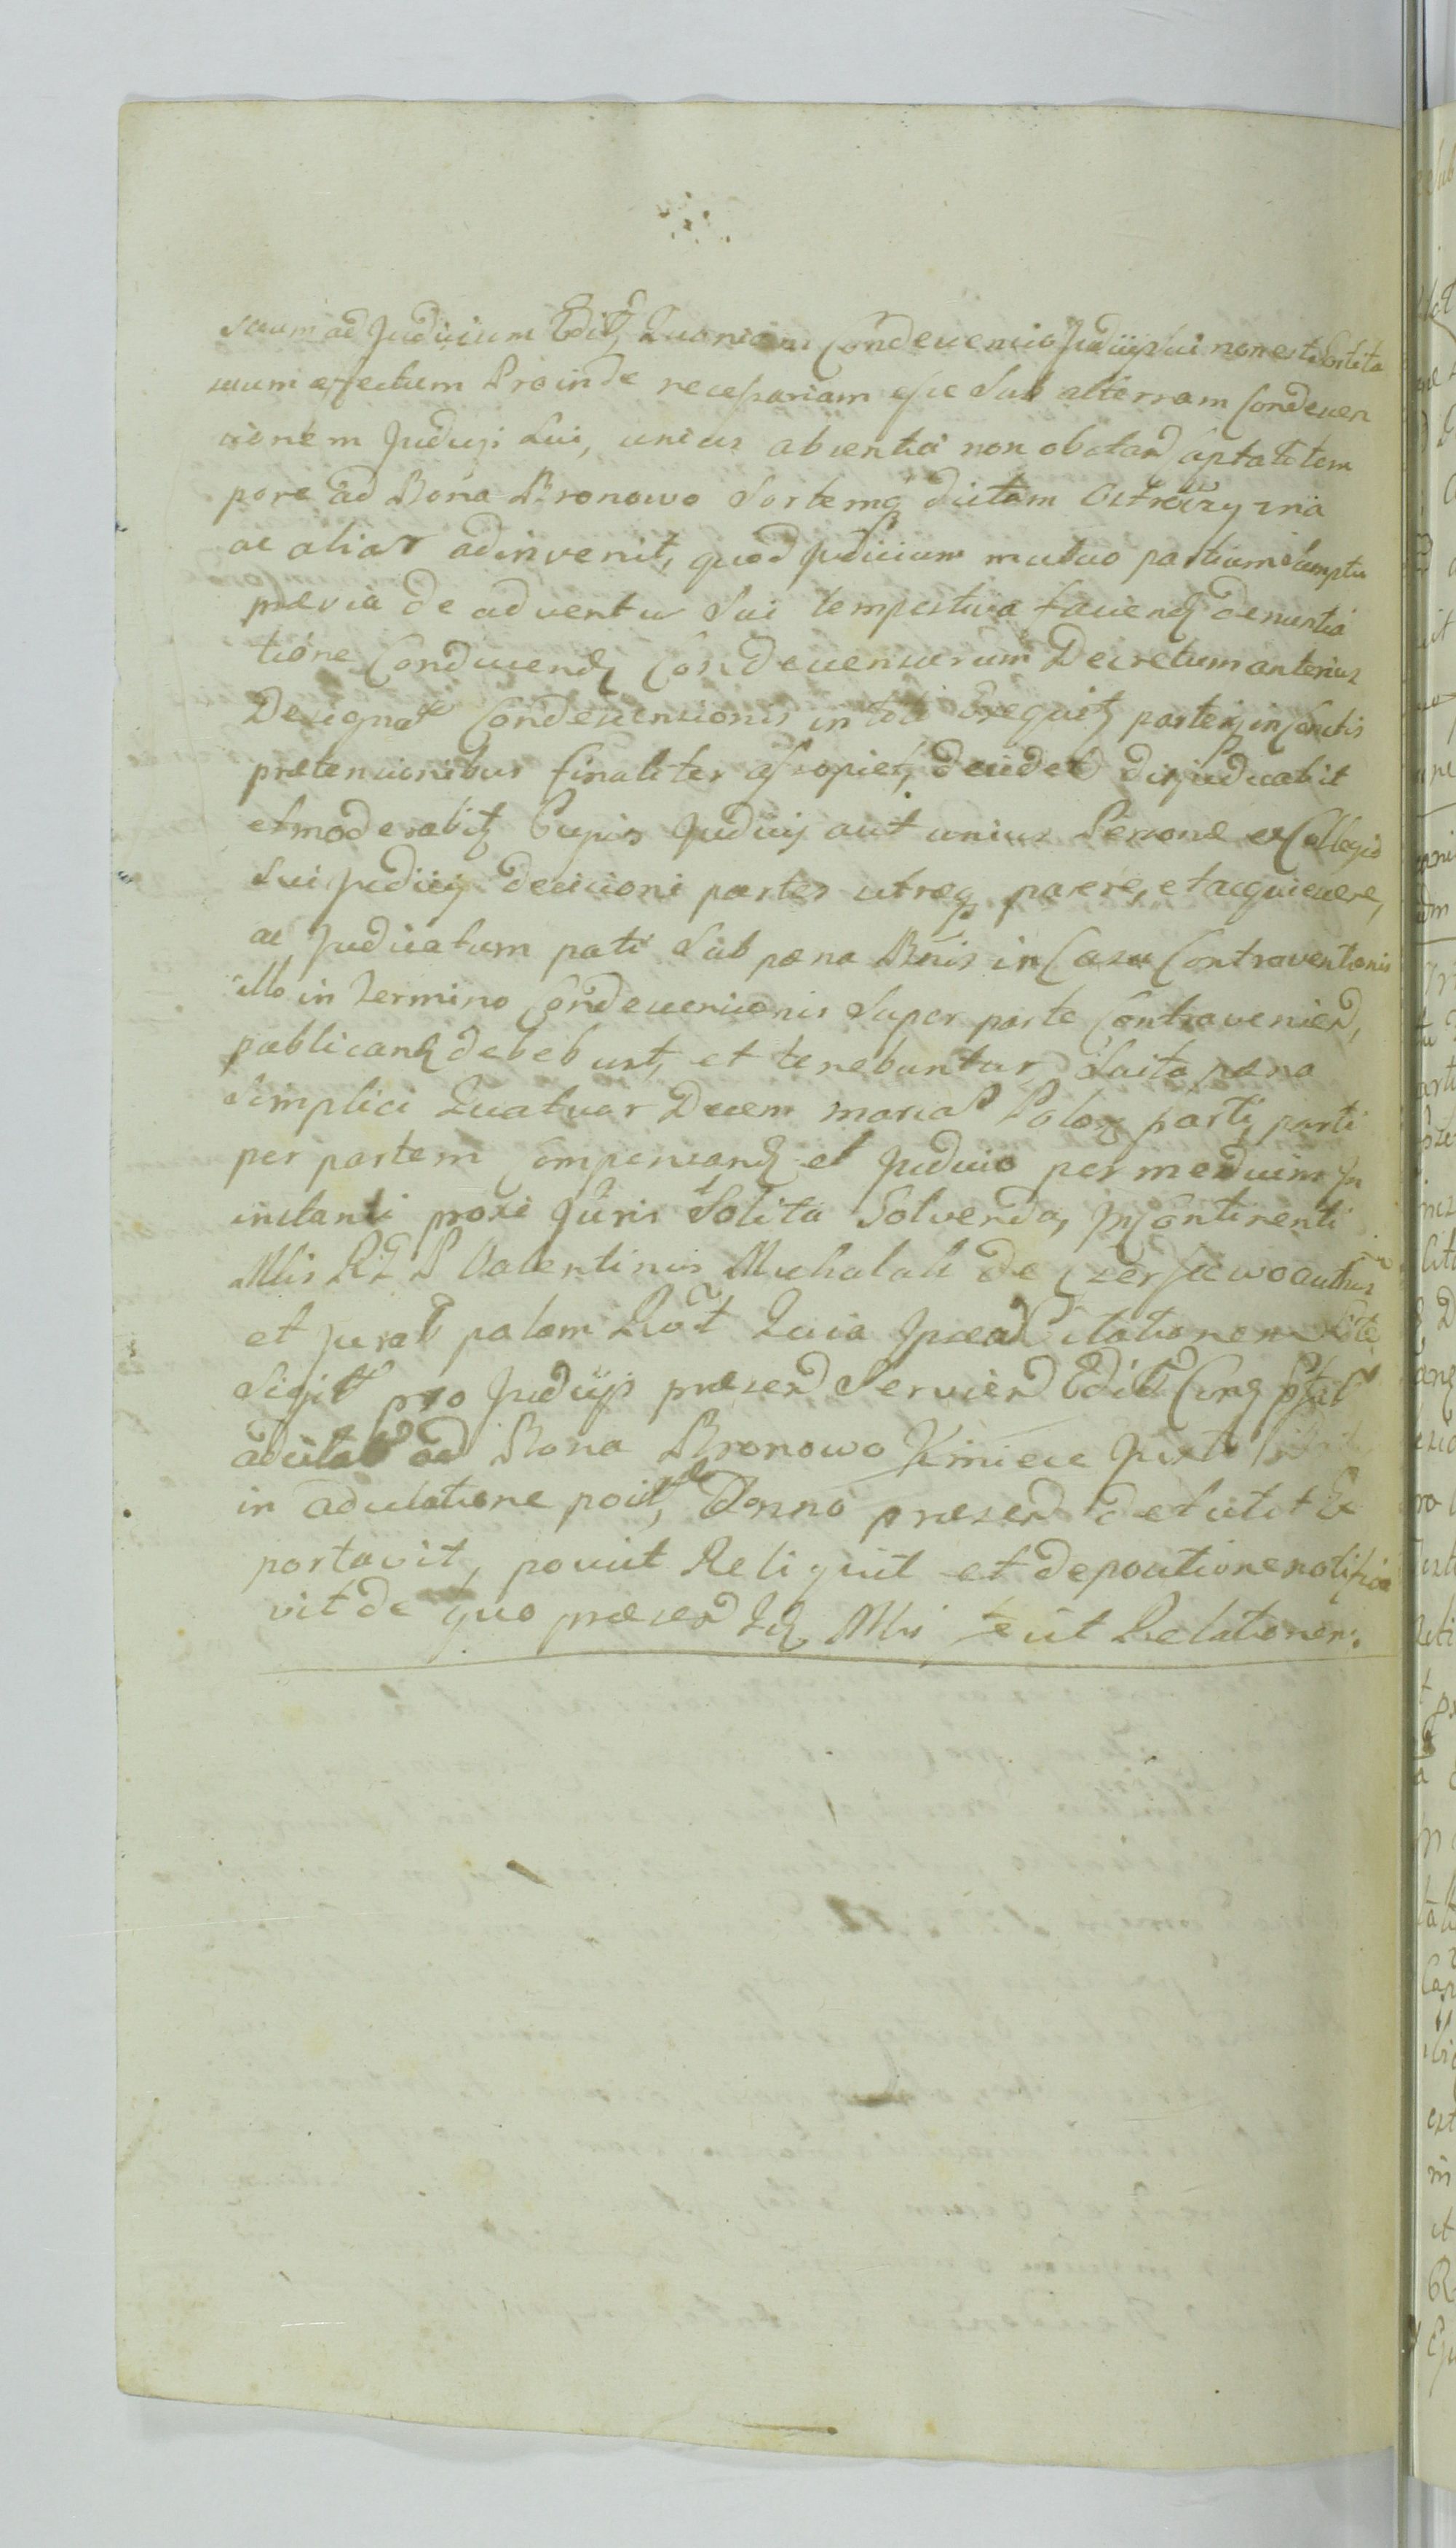 suum ad Judicium Edit Quoniam Condescensio Judicij sui non est Sortita
suum effectum Proinde necessariam esse Sub alterram Condescen
sionem Judicij Sui, unius absentia non obstan captato tem
pore ad Bona Bronowo Sortemq dictam
ac alias adinvenit, quod Judicium mutuo partium Sumptu
prævia de adventu Sui tempestiva faciend denuntia
tione Conducend Condescensurum Decretum anterius
Designat Condescensionis in toto Exequit partes in Cunctis
prætensionibus finaliter assopiet, decidet dirjudicabit
et moderabit Cujus Judicij aut unius Personæ ex Collegio
Sui Judicij decisioni partes utræq parere, et acquiescere,
ac Judicatum pati Sub pæna Bnis in Casu Contraventionis
illo in termino Condescensionis Super parte Contravenien,
publicand debebunt, et tenebuntur Salta pæna
Simplici Quatuor Decem marcas Polon parti parti
per partem Compensand et Judicio per medium In
instanti proxi Juris Solita Solvenda, In Continenti
Mis RGL P Valentinus Michalak de authus
et jurat palam Quia Citationem
Sigil pro Judicijs præsen Servien Edit
ad Bona Bronowo Kmiece
in posit, Anno præsen detulit
portavit, posuit Reliquit et de positione notifica
vit de quo præsen Mis fecit Relationem.